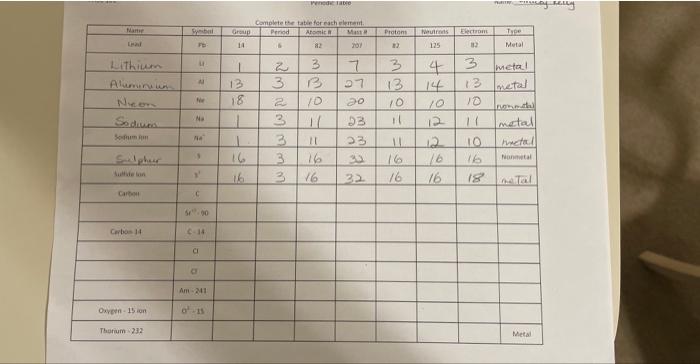 Periodic Table
Kelly
Complete the table for each element.
Name Symbol Group Period Atomic # Mass # Protons Neutrons Electrons Type
Lead Pb 14 6 82 207 82 125 82 Metal
Lithium Li 1 2 3 7 3 4 3 metal
Aluminium Al 13 3 13 27 13 14 13 metal
Neon Ne 18 2 10 20 10 10 10 nonmetal
Sodium Na 1 3 11 23 11 12 11 metal
Sodium Ion Na+ 1 3 11 23 11 12 10 metal
Sulphur S 16 3 16 32 16 16 16 Nonmetal
Sulfide Ion 16 3 16 32 16 16 18 metal
Carbon C
- 90
Carbon 14 C - 14
Cl
Am - 241
Oxygen - 15 ion - 15
Thorium - 232 Metal